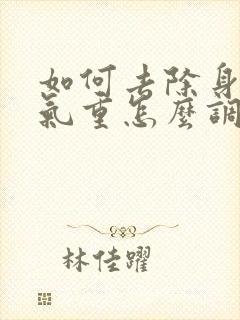 如何去除身
氣重怎麼調
林佳躍